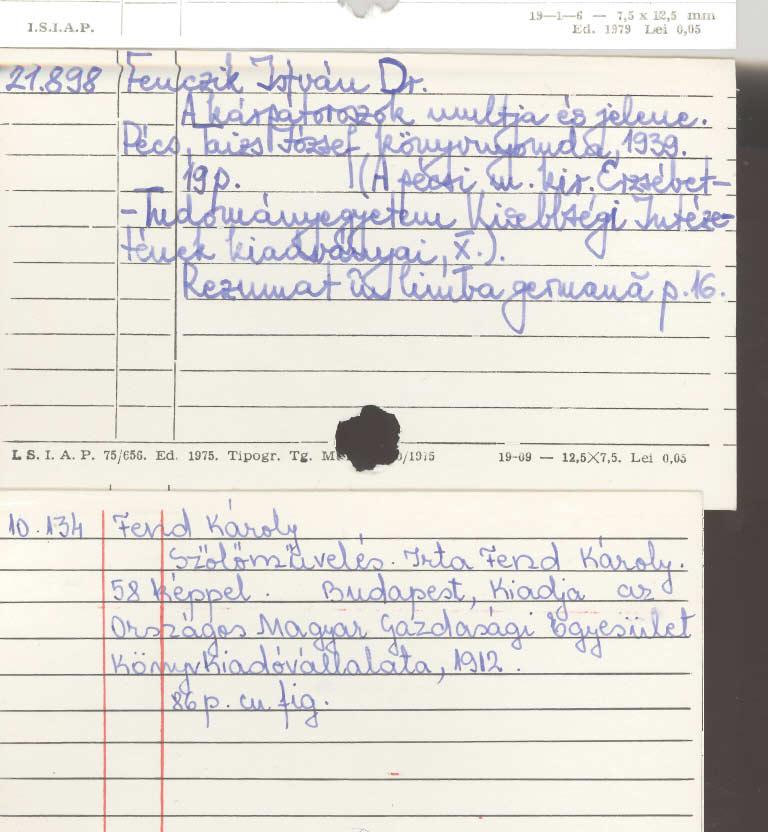 I.S.I.A.P.
19—1—6 — 7,5 x 12,5 mm
Ed. 1979 Lei 0,05
21.898 Fenczik István Dr.
A kárpátoroszok multja és jelene.
Pécs, Taizs József könyvnyomda, 1939.
19 p. (A pécsi m. kir. Erzsébet-
-Tudományegyetem Kisebbségi Intéze-
tének kiadványai, X.).
Rezumat în limba germană p. 16.
I. S. I. A. P. 75/656. Ed. 1975. Tipogr. Tg. /1975 19-09 — 12,5X7,5. Lei 0,05
10.134 Fend Károly
Szőlőművelés. Irta Fend Károly.
58 képpel. Budapest, Kiadja az
Országos Magyar Gazdasági Egyesület
Könyvkiadóvállalata, 1912.
86 p. cu fig.